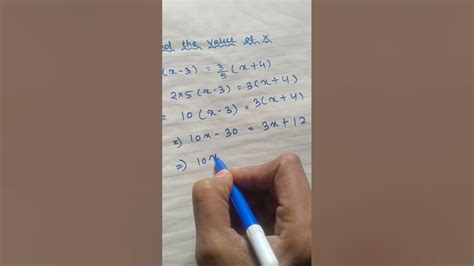 the value of x
(x-3) = 3/5 (x+4)
2×5(x-3) = 3(x+4)
= 10(x-3) = 3(x+4)
=) 10x-30 = 3x+12
=) 10x